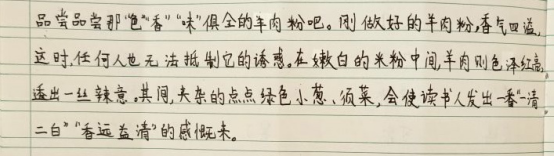 品尝品尝那"色""香""味"俱全的羊肉粉吧。刚做好的羊肉粉,香气四溢,
这时,任何人也无法抵制它的诱惑。在嫩白的米粉中间,羊肉则色泽红亮,
透出一丝辣意。其间,夹杂的点点绿色小葱、须菜,会使读书人发出"一番""一清
二白""香远益清"的感慨来。